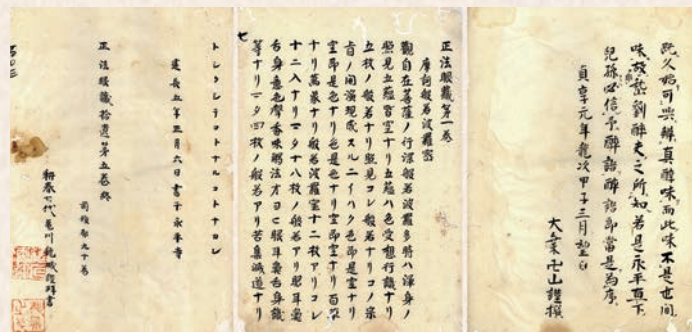 飲久始可與辨真醇味而此味不是世間
劉醉夫之所知若是永平直下
兒孫必信予醉語醉語即當是為序
貞享元年龍次甲子三月
大乘卍山謹撰
正法眼藏第一卷
摩訶般若波羅蜜
觀自在菩薩ノ行深般若波羅多時ハ渾身ノ
照見五蘊皆空ナリ五蘊ハ色受想行識ナリ
五枚ノ般若ナリ照見コレ般若ナリコノ宗
旨ノ開演現成スルニイハク色即是空ナリ
空即是色ナリ色是色ナリ空即空ナリ百草
ナリ萬象ナリ般若波羅蜜十二枚アリコレ
十二入ナリマタ十八枚ノ般若アリ眼耳鼻
舌身意色聲香味觸法オヨヒ眼耳鼻舌身識
等ナリマタ四枚ノ般若アリ苦集滅道ナリ
七
コトナルコトナカレ
建長五年正月六日書于永平寺
正法眼藏拾遺第五卷終
前後都九十卷
耕春七代